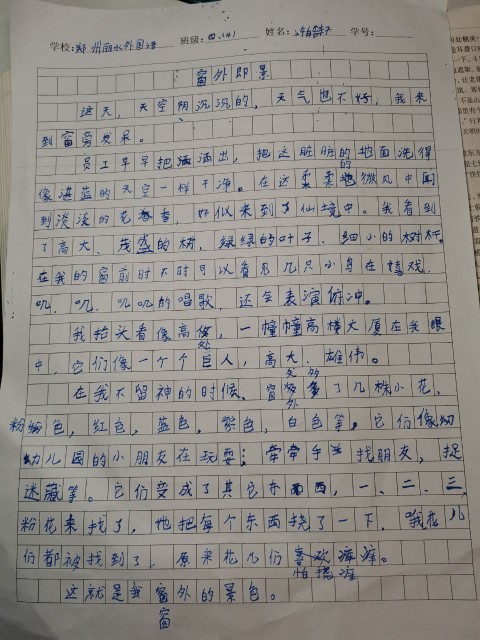 学校:郑州丽水外国语 班级:四.(4) 姓名: 学号:
窗外即景
这天,天空阴沉沉的,天气也不好,我来
到窗旁发呆。
员工早早把洒洒出,把这脏脏的地面洗得
像湛蓝的天空一样干净。在这柔柔的微风中闻
到淡淡的花香,好似来到了仙境中。我看到
了高大、茂盛的树,绿绿的叶子,细小的树杆。
在我的窗前时不时可以看见几只小鸟在嬉戏,
叽、叽、叽叽的唱歌,还会表演俯冲。
我抬头看像高处,一幢幢高楼大厦在我眼
中,它们像一个个巨人,高大、雄伟。
在我不留神的时候,窗外多了几株小花,
粉粉色,红色,蓝色,紫色,白色等,它们像幼
幼儿园的小朋友在玩耍;牵牵手 找朋友,捉
迷藏等。它们变成了其它东西,一、二、三,
粉花来找了,他把每个东西挠了一下,哦花儿
们都被找到了,原来花儿们
怕挠痒
这就是我窗外的景色。
窗